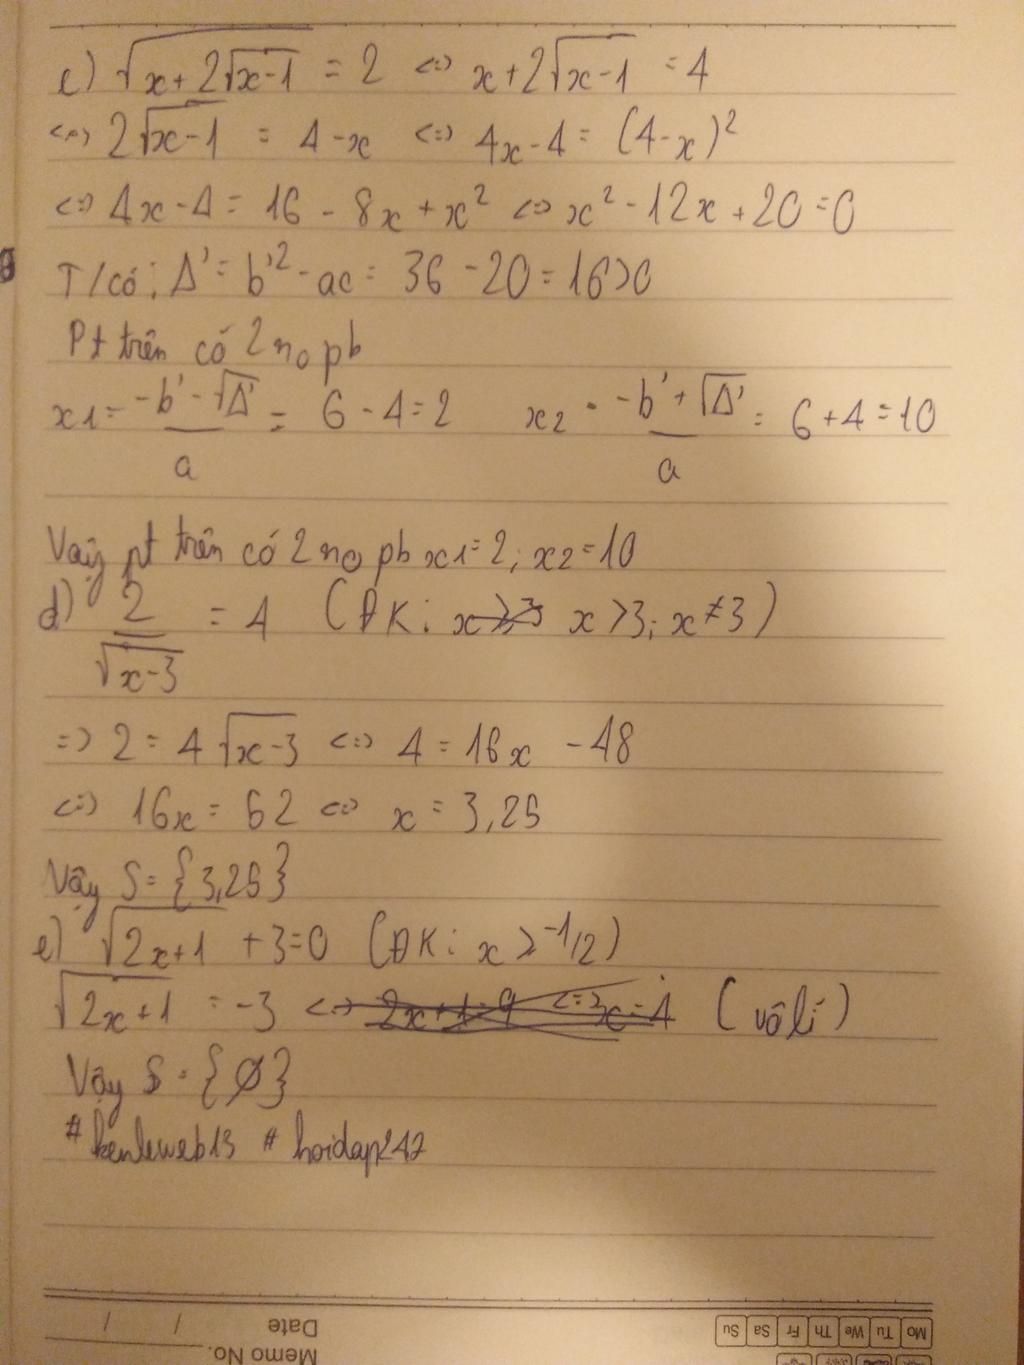 c) √(x+2√(x-1)) = 2 <=> x+2√(x-1) = 4
<=> 2√(x-1) = 4-x <=> 4x-4 = (4-x)²
<=> 4x-4 = 16 - 8x + x² <=> x² - 12x + 20 = 0
T/có: Δ' = b'² - ac = 36 - 20 = 16 > 0
Pt trên có 2 no pb
x1 = (-b' - √Δ')/a = 6 - 4 = 2 x2 = (-b' + √Δ')/a = 6 + 4 = 10
Vậy pt trên có 2 no pb x1 = 2; x2 = 10
d) 2/√(x-3) = 4 (ĐK: x > 3; x ≠ 3)
=> 2 = 4√(x-3) <=> 4 = 16x - 48
<=> 16x = 52 <=> x = 3,25
Vậy S = {3,25}
e) √(2x+1) + 3 = 0 (ĐK: x ≥ -1/2)
√(2x+1) = -3 <=> (vô lí)
Vậy S = {Ø}
#kenleweb13 #hoidap247
Mo Tu We Th Fr Sa Su
Date / /
Memo No.